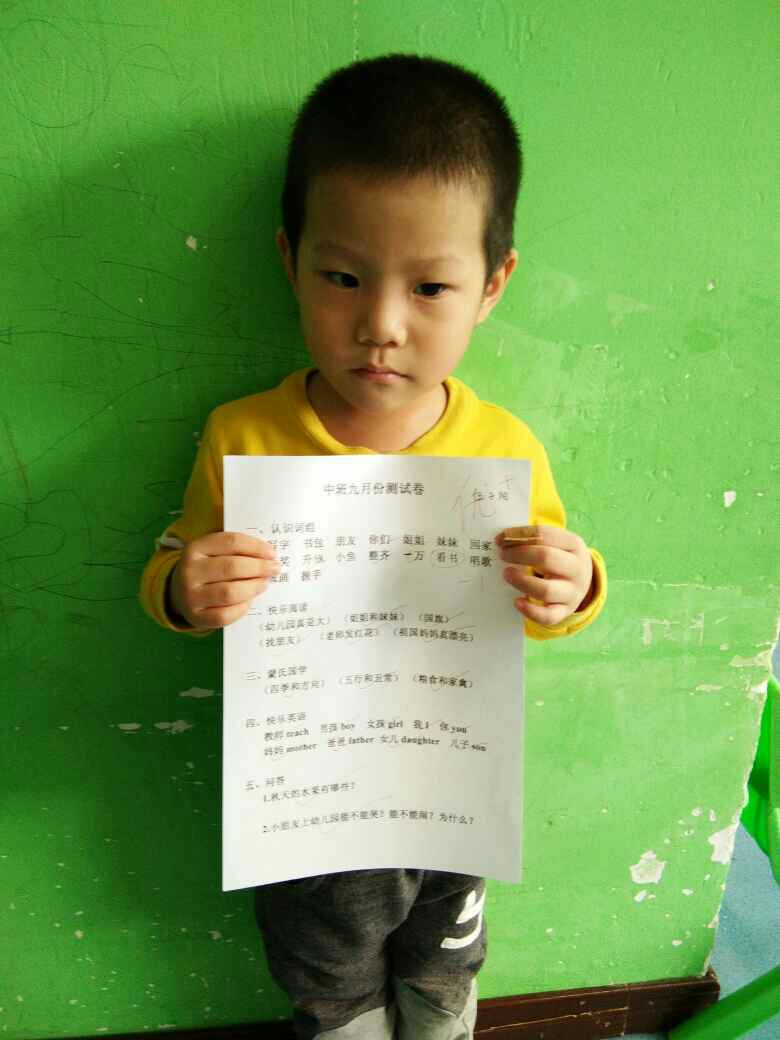 中班九月份测试卷
优
一、认识词组
写字 书包 朋友 你们 姐姐 妹妹 回家
奖 升旗 小鱼 整齐 一万 看书 唱歌
画画 握手
二、快乐阅读
（幼儿园真是大）（姐姐和妹妹）（国旗）
（找朋友）（老师发红花）（祖国妈妈真漂亮）
三、蒙氏国学
（四季和方向）（五行和五常）（粮食和家禽）
四、快乐英语
教师 teach 男孩 boy 女孩 girl 我 I 你 you
妈妈 mother 爸爸 father 女儿 daughter 儿子 son
五、问答
1.秋天的水果有哪些？
2.小朋友上幼儿园能不能哭？能不能闹？为什么？